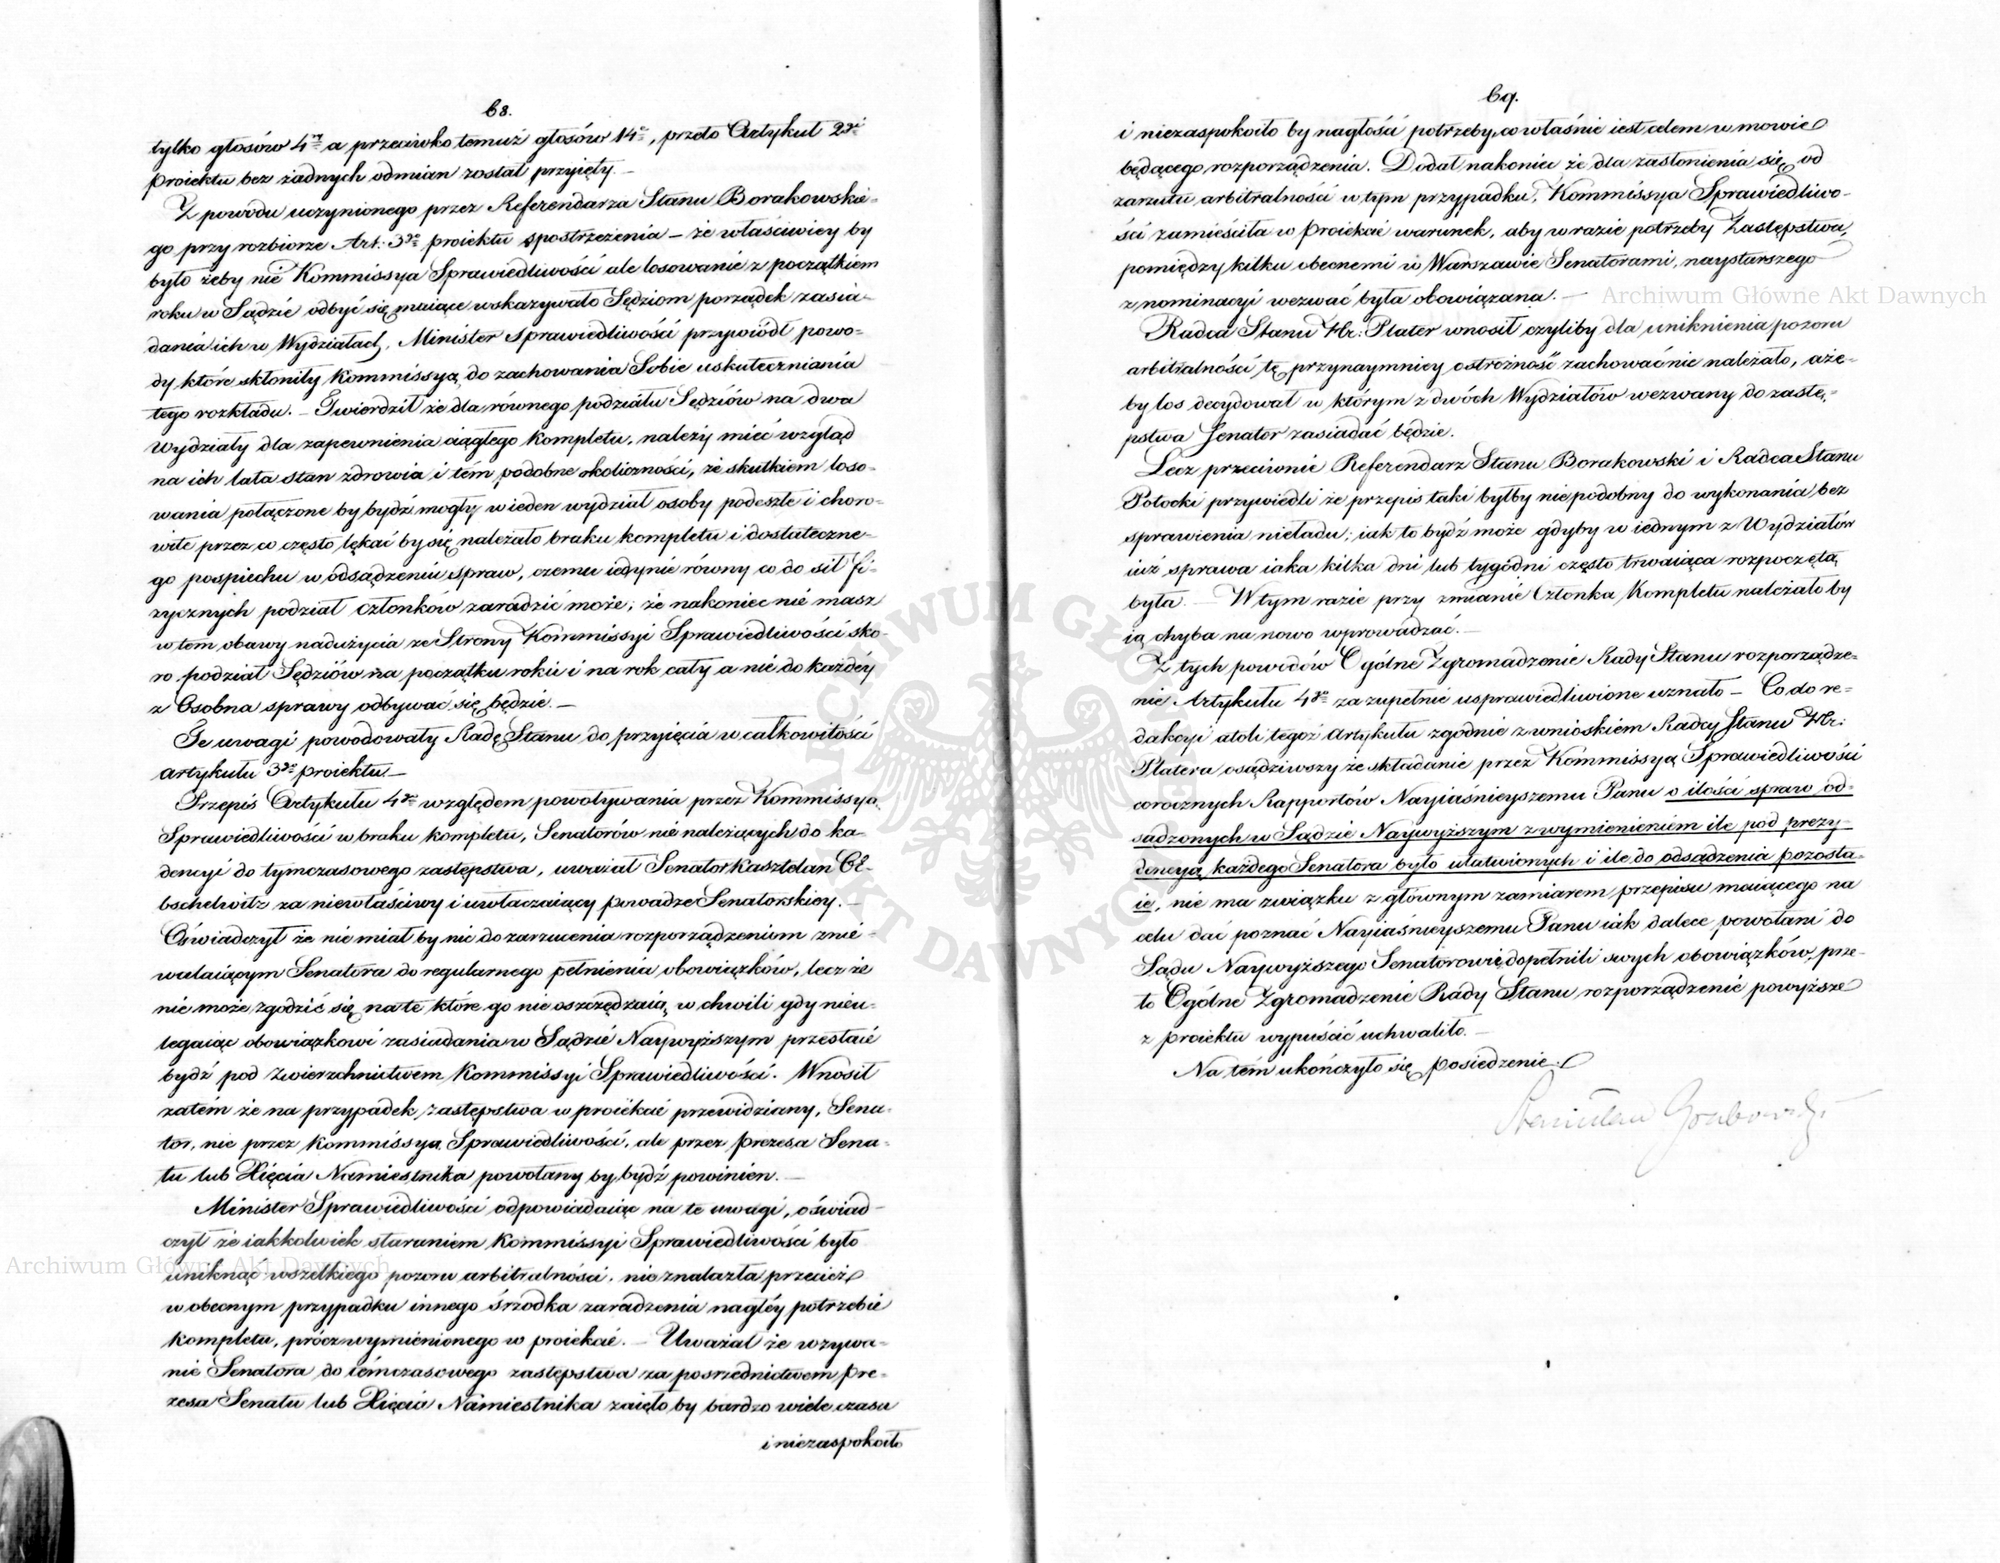 68.
tylko głosów 4ry a przeciwko temuż głosów 14e, przeto Artykuł 2gi
proiektu bez żadnych odmian został przyięty. —
Z powodu uczynionego przez Referendarza Stanu Borakowskie-
go przy rozbiorze Art: 3go proiektu spostrzeżenia — że właściwiey by
było żeby nie Kommissya Sprawiedliwości ale losowanie z początkiem
roku w Sądzie odbyć się maiące wskazywało Sędziom porządek zasia-
dania ich w Wydziałach, Minister Sprawiedliwości przywiódł powo-
dy które skłoniły Kommissyą do zachowania Sobie uskuteczniania
tego rozkładu. — Twierdził że dla równego podziału Sędziów na dwa
Wydziały dla zapewnienia ciągłego kompletu, należy mieć wzgląd
na ich lata stan zdrowia i tém podobne okoliczności, że skutkiem loso-
wania połączone by bydź mogły w ieden wydział osoby podeszłe i choro-
wite przez co często lękać by się należało braku kompletu i dostateczne-
go pospiechu w odsądzeniu spraw, czemu iedynie równy co do sił fi-
zycznych podział członków zaradzić może; że nakoniec nie masz
w tem obawy nadużycia ze Strony Kommissyi Sprawiedliwości sko-
ro podział Sędziów na początku roku i na rok cały a nie do każdéy
z Osobna sprawy odbywać się będzie. —
Te uwagi powodowały Radę Stanu do przyięcia w całkowitości
artykułu 3go proiektu —
Przepis Artykułu 4go względem powoływania przez Kommissyą
Sprawiedliwości w braku kompletu, Senatorów nie należących do ka-
dencyi do tymczasowego zastępstwa, uważał Senator Kasztelan Gli-
bschelwitz za niewłaściwy i uwłaczaiący powadze Senatorskiey. —
Oświadczył że nie miał by nic do zarzucenia rozporządzeniom znie-
walaiącym Senatora do regularnego pełnienia obowiązków, lecz że
nie może zgodzić się na te które go nie oszczędzaią w chwili gdy nieu-
legaiąc obowiązkowi zasiadania w Sądzie Naywyższym przestaie
bydź pod Zwierzchnictwem Kommissyi Sprawiedliwości. Wnosił
zatém że na przypadek zastępstwa w proiekcie przewidziany, Sena-
tor, nie przez Kommissyą Sprawiedliwości, ale przez Prezesa Sena-
tu lub Xięcia Namiestnika powołany by bydź powinien. —
Minister Sprawiedliwości odpowiadaiąc na te uwagi, oświad-
czył że iakkolwiek staraniem Kommissyi Sprawiedliwości było
uniknąć wszelkiego pozoru arbitralności, nie znalazła przecież
w obecnym przypadku innego śrzodka zaradzenia nagłéy potrzebie
kompletu, prócz wymienionego w proiekcie. — Uważał że wzywa-
nie Senatora do témczasowego zastępstwa za posrzednictwem Pre-
zesa Senatu lub Xięcia Namiestnika zaięło by bardzo wiele czasu
i niezaspokoiło
69.
i niezaspokoiło by nagłości potrzeby, co właśnie iest celem w mowie
będącego rozporządzenia. Dodał nakoniec że dla zasłonienia się od
zarzutu arbitralności w tym przypadku, Kommissya Sprawiedliwo-
ści zamieściła w proiekcie warunek, aby w razie potrzeby Zastępstwa,
pomiędzy kilku obecnemi w Warszawie Senatorami, naystarszego
z nominacyi wezwać była obowiązana. —
Radca Stanu Hr: Plater wnosił czyliby dla uniknienia pozoru
arbitralności tę przynaymniey ostrożność zachować nie należało, aże-
by los decydował w którym z dwóch Wydziałów wezwany do zastę-
pstwa Senator zasiadać będzie.
Lecz przeciwnie Referendarz Stanu Borakowski i Radca Stanu
Potocki przywiedli że przepis taki byłby niepodobny do wykonania bez
sprawienia nieładu; iak to bydź może gdyby w iednym z Wydziałów
iuż sprawa iaka kilka dni lub tygodni często trwaiąca rozpoczętą
była. — W tym razie przy zmianie Członka Kompletu należało by
ią chyba na nowo wprowadzać. —
Z tych powodów Ogólne Zgromadzenie Rady Stanu rozporządze-
nie Artykułu 4go za zupełnie usprawiedliwione uznało — Co do re-
dakcyi atoli tegoż Artykułu zgodnie z wnioskiem Radcy Stanu Hr:
Platera osądziwszy że składanie przez Kommissyą Sprawiedliwości
corocznych Rapportów Nayiaśnieyszemu Panu o ilości spraw od-
sądzonych w Sądzie Naywyższym z wymienieniem ile pod prezy-
dencyą każdego Senatora było ułatwionych i ile do odsądzenia pozosta-
ie, nie ma związku z głównym zamiarem przepisu maiącego na
celu dać poznać Nayiaśnieyszemu Panu iak dalece powołani do
Sądu Naywyższego Senatorowie dopełnili swych obowiązków, prze-
to Ogólne Zgromadzenie Rady Stanu rozporządzenie powyższe
z proiektu wypuścić uchwaliło. —
Na tém ukończyło się posiedzenie.
Stanisław Grabowski
Archiwum Główne Akt Dawnych
Archiwum Główne Akt Dawnych
ARCHIWUM GŁÓWNE AKT DAWNYCH